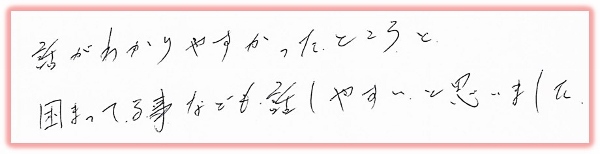 話がわかりやすかったところと
困まってる事なども話しやすいと思いました